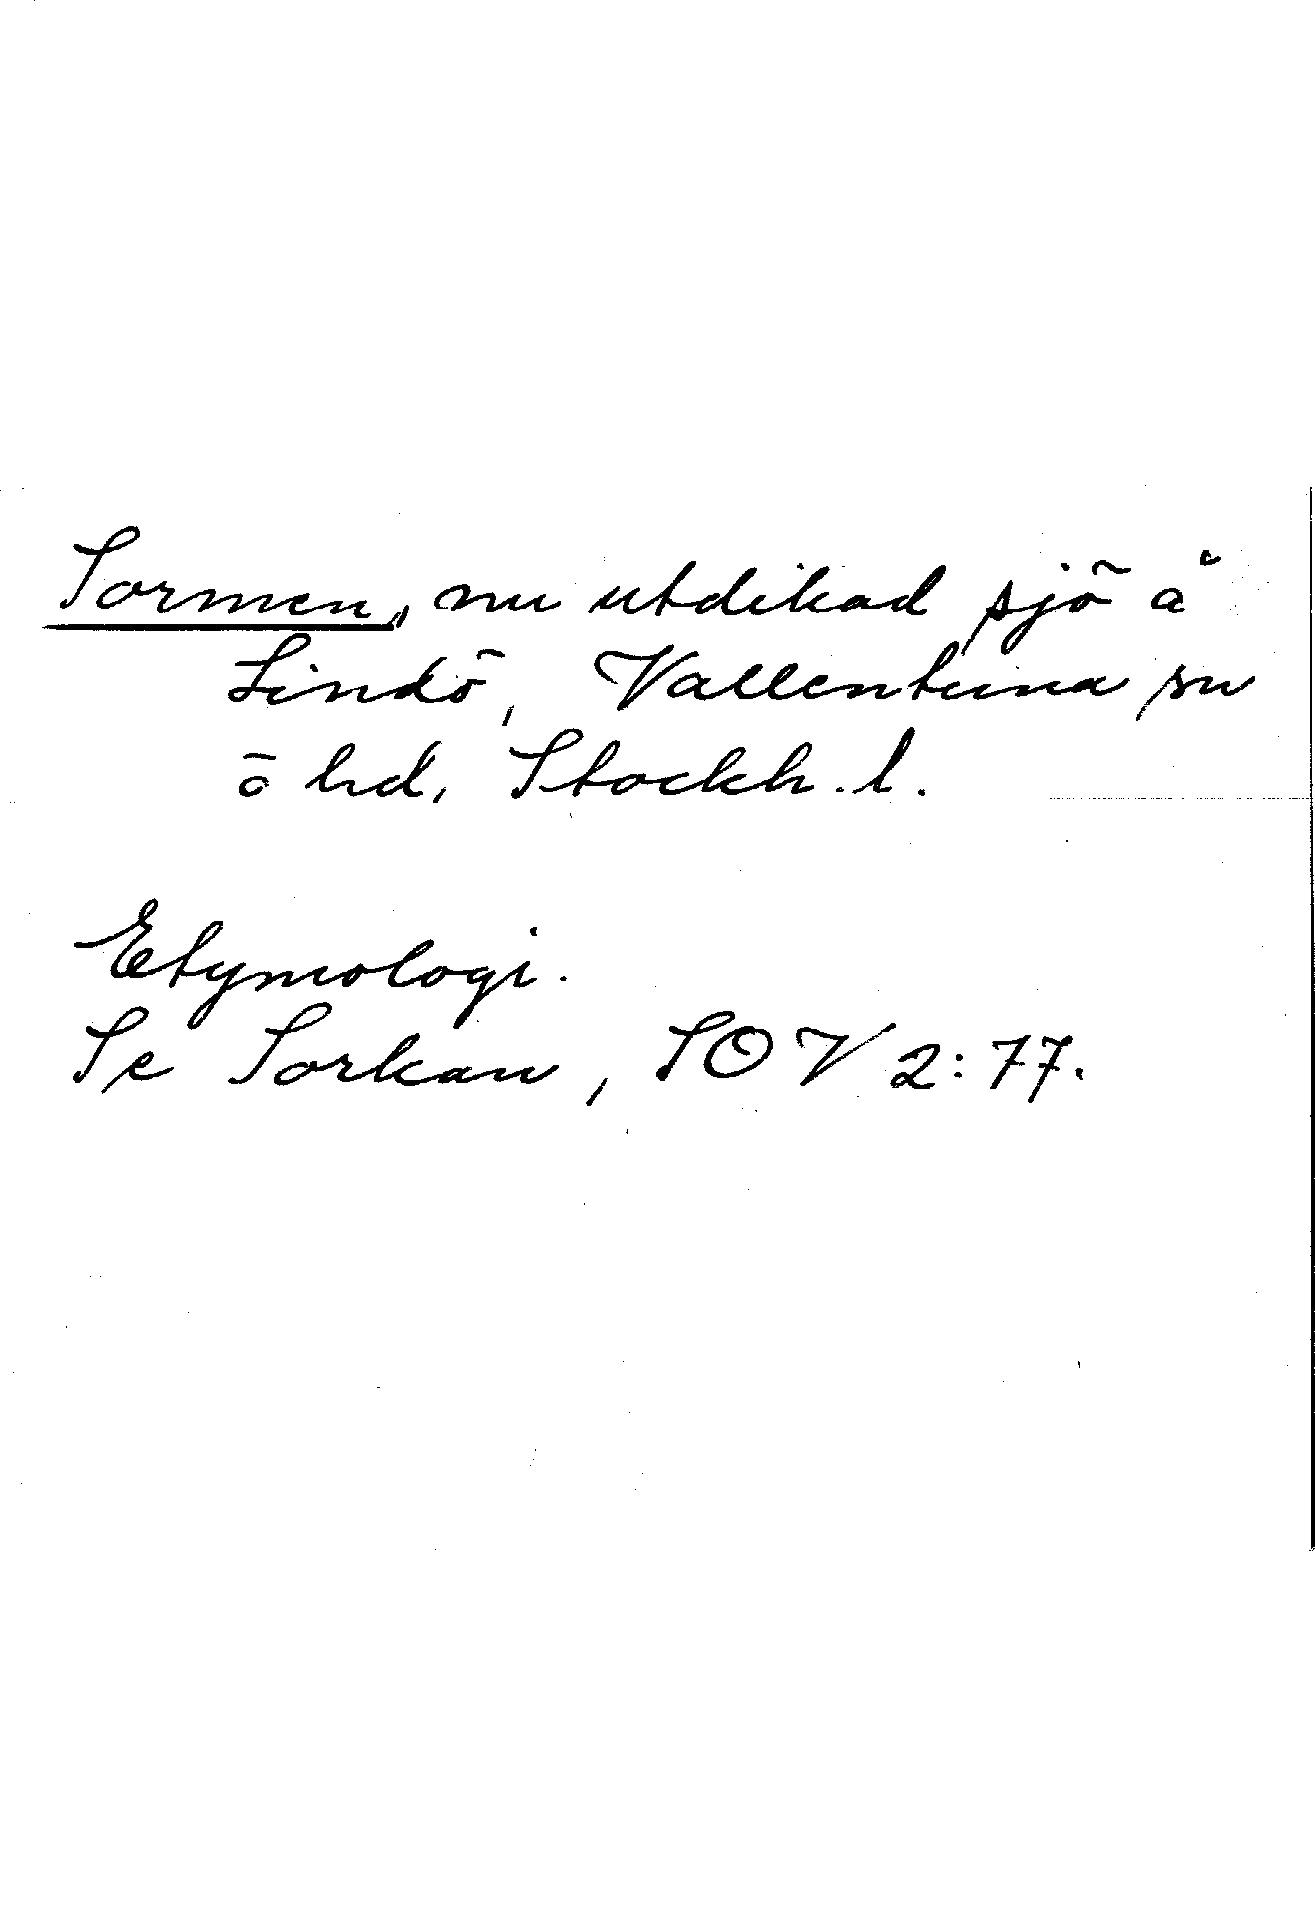 Sormen, nu utdikad sjö å
Lindö, Vallentuna sn
ö hd, Stockh.l.
Etymologi.
Se Sorkan, SOV 2:77.